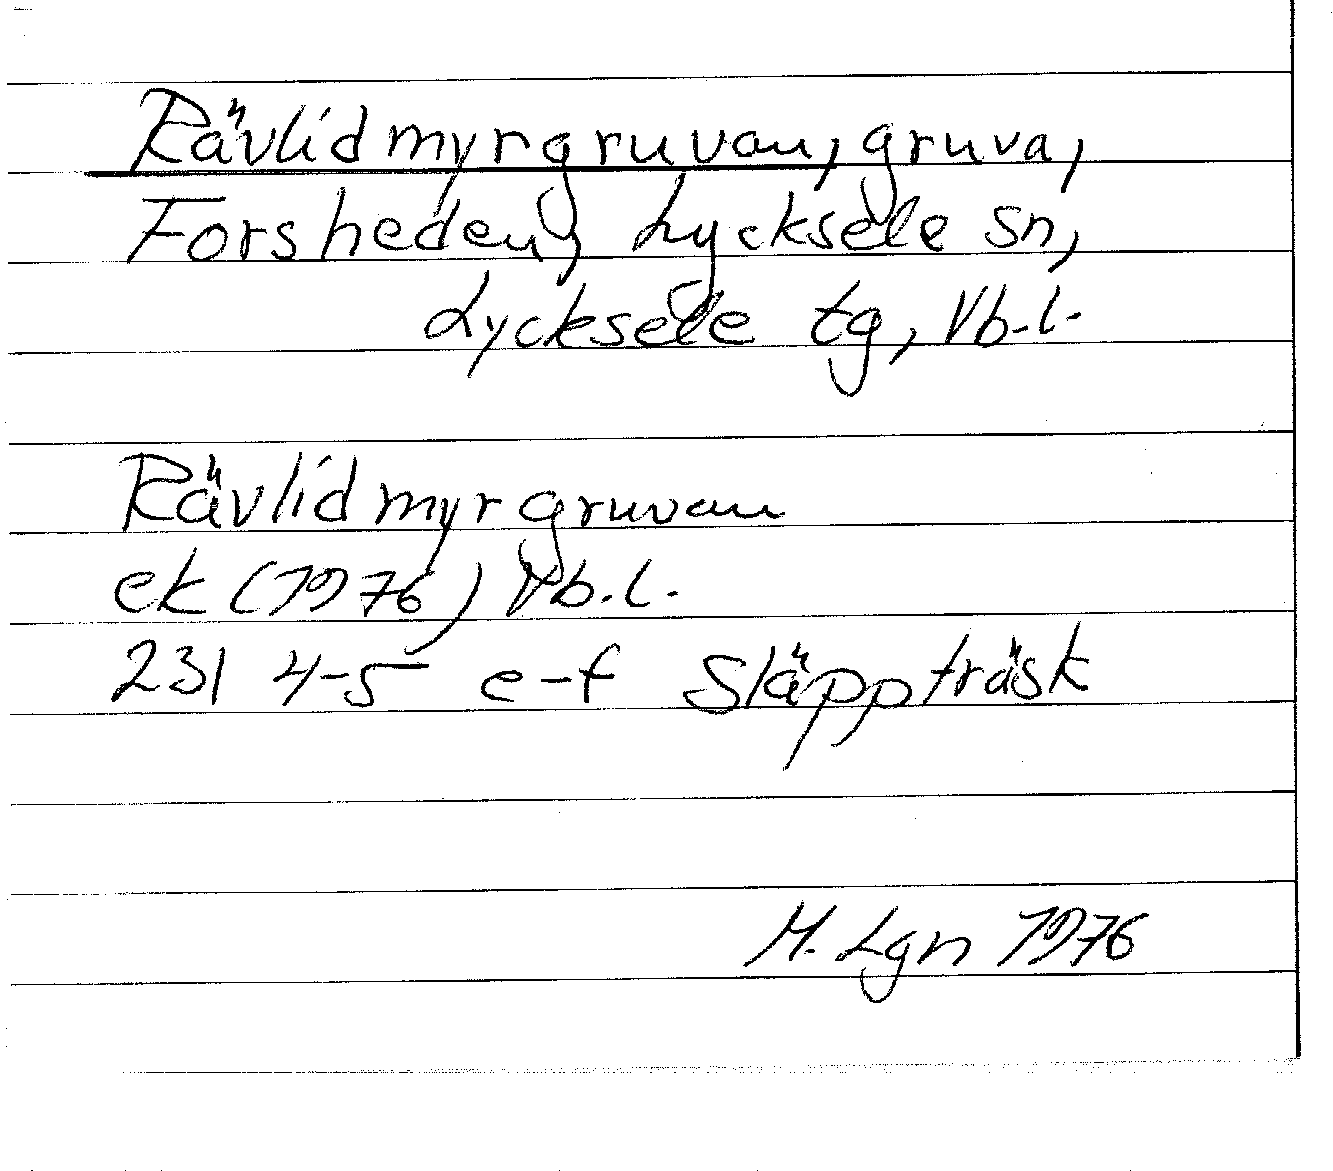 Rävlidmyrgruvan, gruva,
Forsheden, Lycksele sn,
Lycksele tg, Vb.l.
Rävlidmyrgruvan
ek (1976) Vb.l.
231 4-5 e-f Släppträsk
M. Lgn 1976